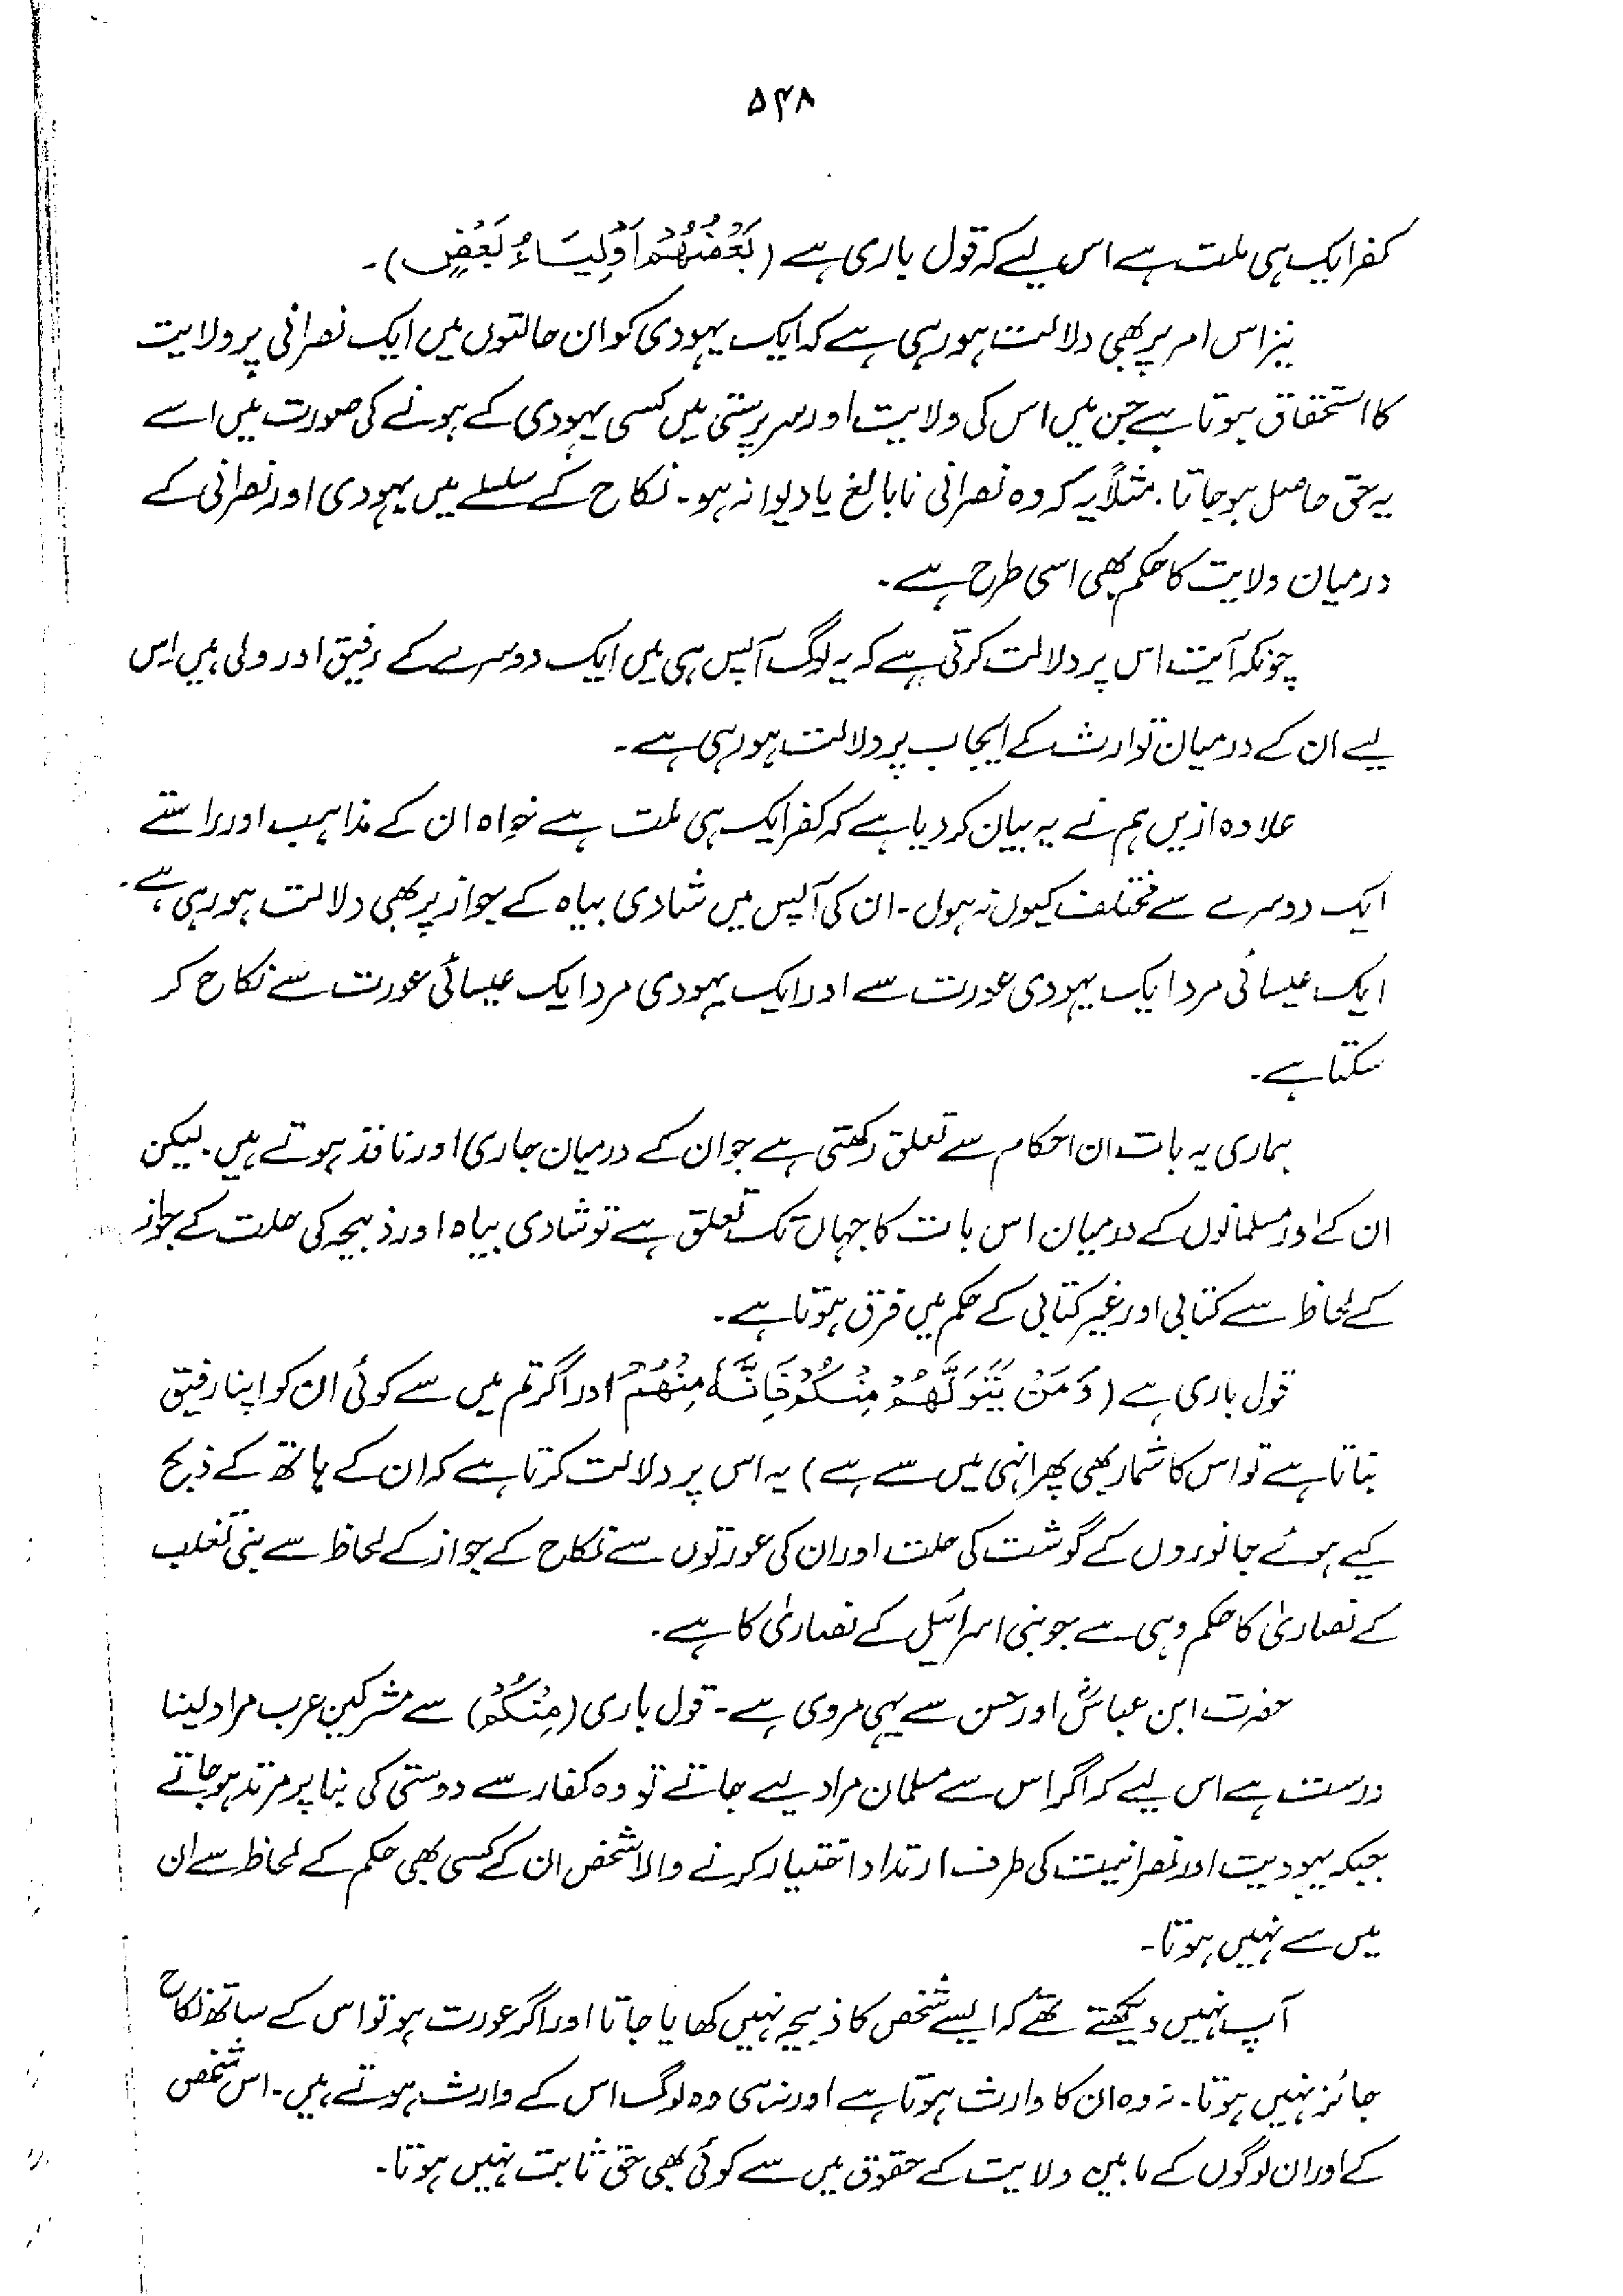 ۵۴۸
کفر ایک ہی ملت ہے اس لیے کہ قول باری ہے (بَعْضُهُمْ اَوْلِيَاءُ بَعْضٍ)۔
نیز اس امر پر بھی دلالت ہو رہی ہے کہ ایک یہودی کو ان حالتوں میں ایک نصرانی پر ولایت
کا استحقاق ہوتا ہے جن میں اس کی ولایت اور سرپرستی میں کسی یہودی کے ہونے کی صورت میں اسے
یہ حق حاصل ہو جاتا۔ مثلاً یہ کہ وہ نصرانی نابالغ یا دیوانہ ہو۔ نکاح کے سلسلے میں یہودی اور نصرانی کے
درمیان ولایت کا حکم بھی اسی طرح ہے۔
چونکہ آیت اس پر دلالت کرتی ہے کہ یہ لوگ آپس ہی میں ایک دوسرے کے رفیق اور ولی ہیں اس
لیے ان کے درمیان توارث کے ایجاب پر دلالت ہو رہی ہے۔
علاوہ ازیں ہم نے یہ بیان کر دیا ہے کہ کفر ایک ہی ملت ہے خواہ ان کے مذاہب اور راستے
ایک دوسرے سے مختلف کیوں نہ ہوں۔ ان کی آپس میں شادی بیاہ کے جواز پر بھی دلالت ہو رہی ہے۔
ایک عیسائی مرد ایک یہودی عورت سے اور ایک یہودی مرد ایک عیسائی عورت سے نکاح کر
سکتا ہے۔
ہماری یہ بات ان احکام سے تعلق رکھتی ہے جو ان کے درمیان جاری اور نافذ ہوتے ہیں۔ لیکن
ان کے اور مسلمانوں کے درمیان اس بات کا جہاں تک تعلق ہے تو شادی بیاہ اور ذبیحہ کی حلت کے جواز
کے لحاظ سے کتابی اور غیر کتابی کے حکم میں فرق ہوتا ہے۔
قول باری ہے (وَمَنْ يَتَوَلَّهُمْ مِنْكُمْ فَاِنَّهٗ مِنْهُمْ اور اگر تم میں سے کوئی ان کو اپنا رفیق
بناتا ہے تو اس کا شمار بھی پھر انہی میں سے ہے) یہ اس پر دلالت کرتا ہے کہ ان کے ہاتھ کے ذبح
کیے ہوئے جانوروں کے گوشت کی حلت اور ان کی عورتوں سے نکاح کے جواز کے لحاظ سے بنی تغلب
کے نصاریٰ کا حکم وہی ہے جو بنی اسرائیل کے نصاریٰ کا ہے۔
حضرت ابن عباسؓ اور حسن سے یہی مروی ہے۔ قول باری (مِنْكُمْ) سے مشرکین عرب مراد لینا
درست ہے اس لیے کہ اگر اس سے مسلمان مراد لیے جاتے تو وہ کفار سے دوستی کی بنا پر مرتد ہو جاتے
جبکہ یہودیت اور نصرانیت کی طرف ارتداد اختیار کرنے والا شخص ان کے کسی بھی حکم کے لحاظ سے ان
میں سے نہیں ہوتا۔
آپ نہیں دیکھتے تھے کہ ایسے شخص کا ذبیحہ نہیں کھایا جاتا اور اگر عورت ہو تو اس کے ساتھ نکاح
جائز نہیں ہوتا۔ نہ وہ ان کا وارث ہوتا ہے اور نہ ہی وہ لوگ اس کے وارث ہوتے ہیں۔ اس شخص
کے اور ان لوگوں کے مابین ولایت کے حقوق میں سے کوئی بھی حق ثابت نہیں ہوتا۔